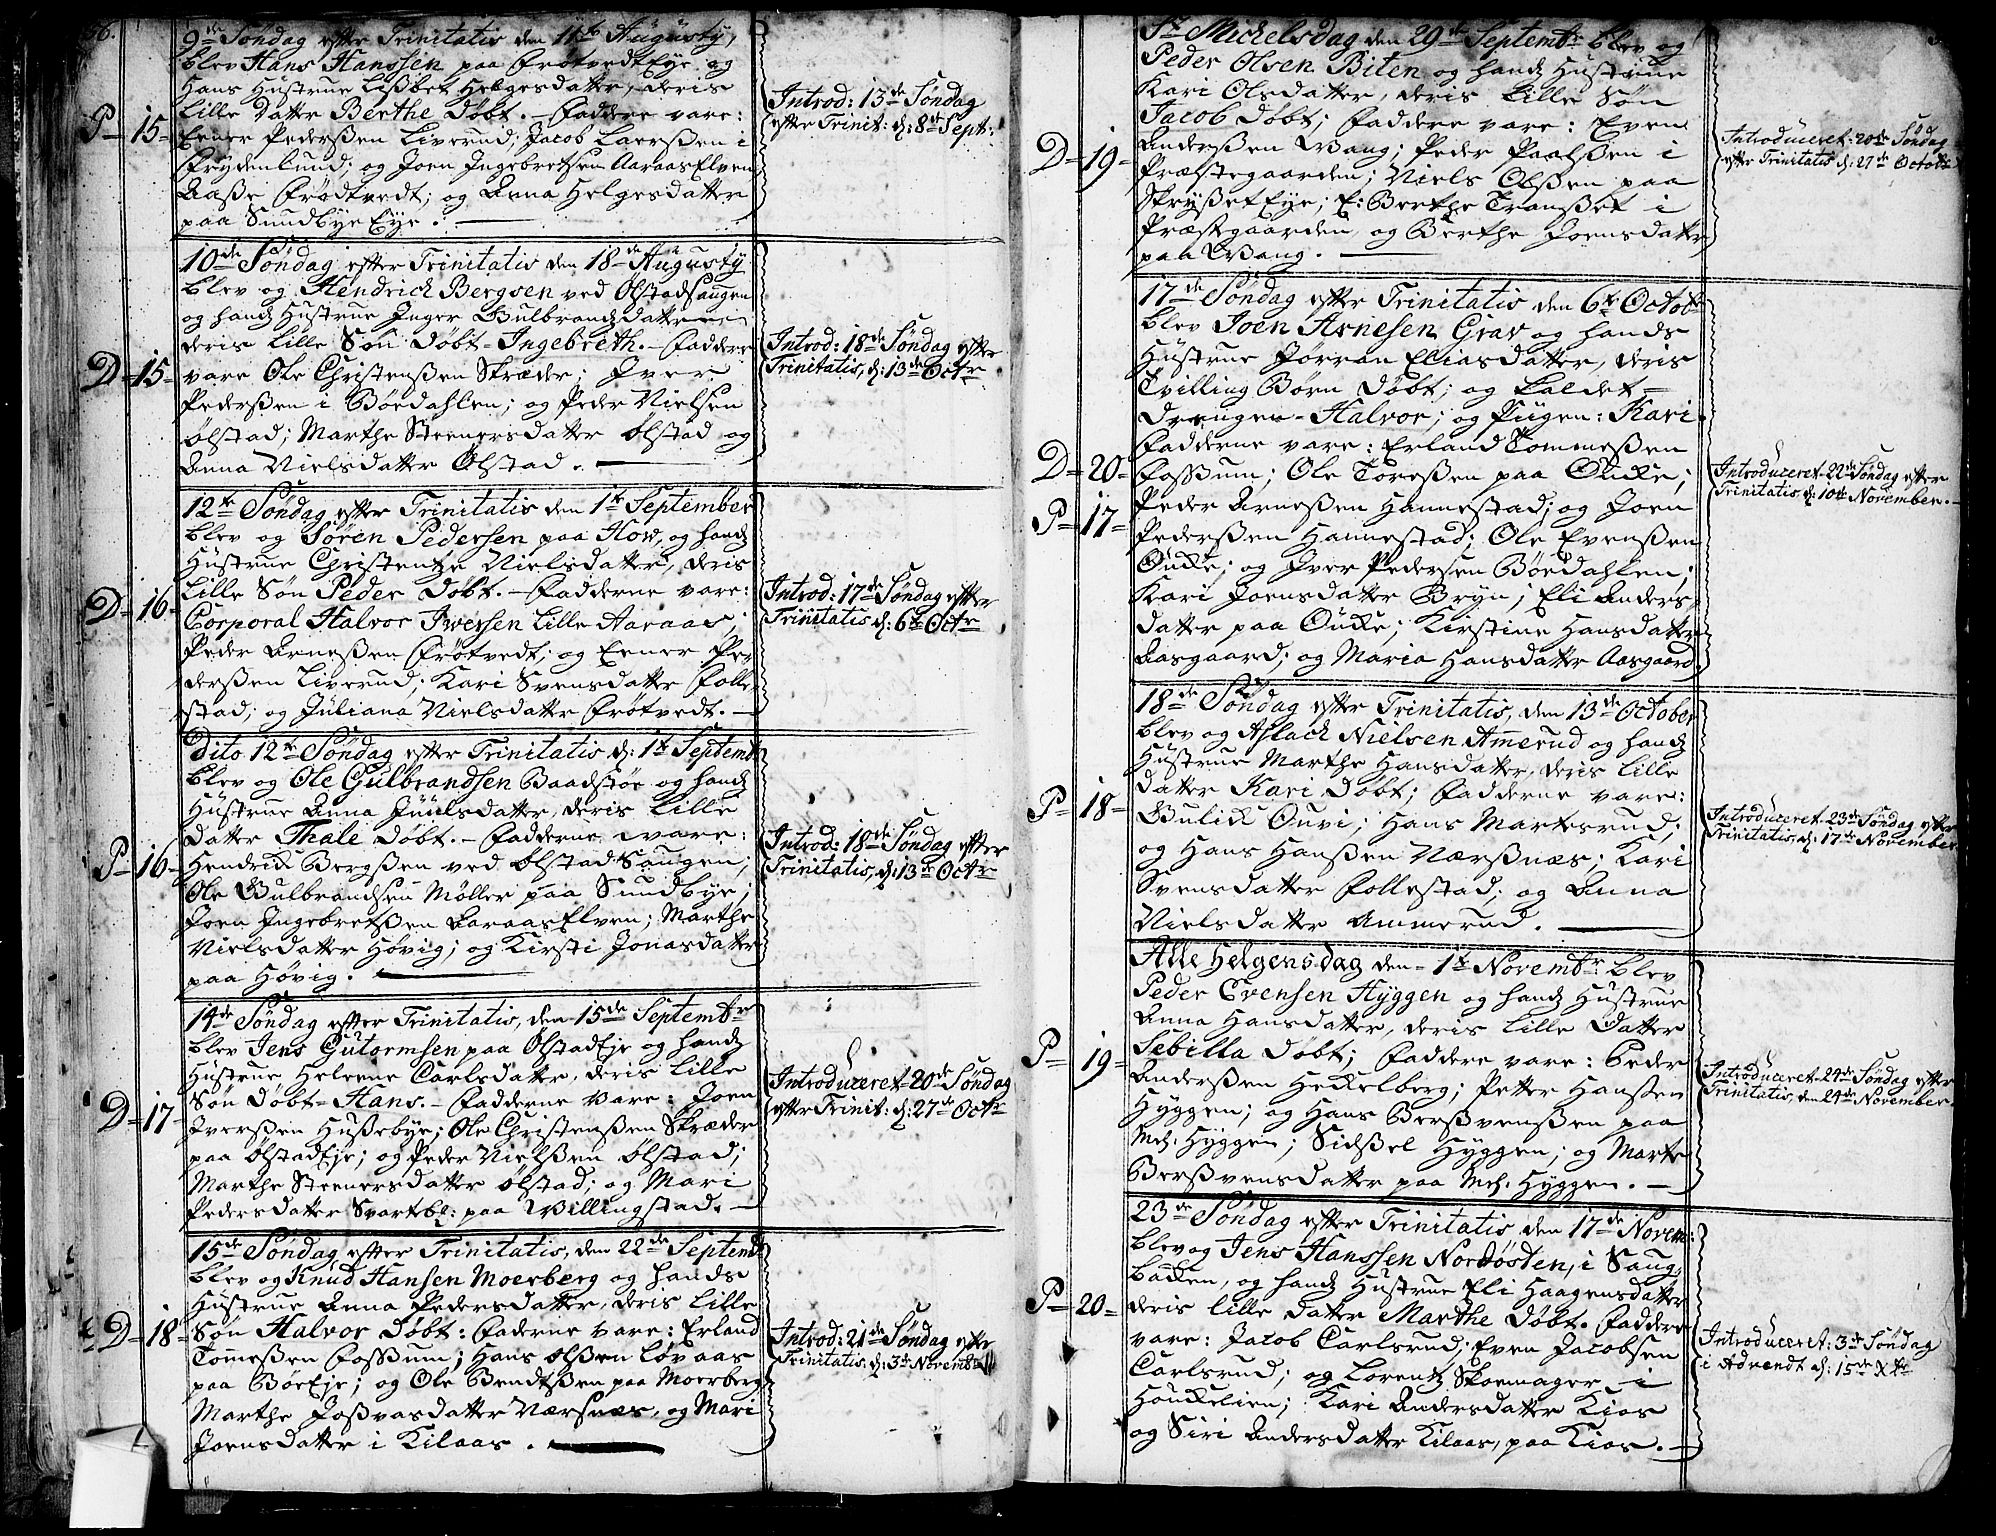 56.
9de Søndag efter Trinitatis den 11te Augusty,
blev Hans Hanssen paa Frøtvedt Eye, og
Hans Hustrue Lisbet Helgesdatter, deris
Lille Datter Berthe Døbt. – Faddere vare:
P – 15 –
Eener Pederssen Liverud; Jacob Laerssen i
Frydenlund; og Joen Ingebretsen Aaraas Elven
Aasse Frødtvedt; og Anna Helgesdatter
paa Sundbye Eye.
Introd: 13de Søndag
efter Trinit: d: 8de Sept:
10de Søndag efter Trinitatis den 18de Augusty
blev og Hendrich Bergsen ved Ølstad Saugen
og hands Hustrue Inger Gulbrandsdatter
deris Lille Søn Døbt – Ingebreth. – Faddere
D – 15 –
vare Ole Christenssen Skræder; Iver
Pederssen i Böedahlen; og Peder Nielsen
Ølstad; Marthe Steenersdatter Ølstad og
Anna Nielsdatter Ølstad.
Introd: 18de Søndag efter
Trinitatis, d: 13de Octr
12te Søndag efter Trinitatis den 1te September
blev og Søren Pedersen paa How, og hands
Hustrue Christentze Nielsdatter, deris
Lille Søn Peder Døbt. – Fadderne vare:
D – 16 –
Corporal Halvor Iversen Lille Aaraas;
Peder Arnessen Frøtvedt; og Eener Pe-
derssen Liverud; Kari Svensdatter Folle-
stad; og Juliana Nielsdatter Frøtvedt. –
Introd: 17de Søndag efter
Trinitatis d: 6te Octr
Dito 12te Søndag efter Trinitatis d: 1te Septemb
blev og Ole Gulbrandsen Baadstøe og hands
Hustrue Anna Juulsdatter, deris Lille
Datter Thale Døbt. – Fadderne vare:
P – 16 –
Hendrik Bergssen ved Ølstad Saugen;
Ole Gulbrandsen Møller paa Sundbye;
Joen Ingebretssen Aaraas Elven; Marthe
Nielsdatter Høvig; og Kirsti Jonasdatter
paa Høvig.
Introd: 18de Søndag efter
Trinitatis, d: 13de Octr
14de Søndag efter Trinitatis, den 15de Septembr
blev Jens Gutormsen paa Ølstad Eje og hands
Hustrue Heleene Carlsdatter, deris Lille
Søn Døbt – Hans. – Fadderne vare: Joen
D – 17
Iverssen Hussebye; Ole Christenssen Skræder
paa Ølstad Eje; og Peder Nielssen Ølstad;
Marthe Steenersdatter Ølstad; og Mari
Pedersdatter Svartebl: paa Willingstad. –
Introduceret – 20de Søndag
efter Trinit: d: 27de Octr
15de Søndag efter Trinitatis, den 22de Septemb
blev og Knud Hansen Moerberg og hands
Hustrue Anna Pedersdatter, deris Lille
D – 18 –
Søn Halvor Døbt: Faderne vare: Erland
Tommessen Fossum; Hans Olssen Løvaas
paa Bör Eje; og Ole Bendtssen paa Moerberg
Marthe Jossvasdatter Nærsnæs, og Mari
Joensdatter i Kilaas.
Introd: 21de Søndag efter
Trinitatis d: 3de Novemb
St Michelsdag den 29de Septembr blev og
Peder Olsen Biten og hands Hustrue
Kari Olsdatter, deris Lille Søn
Jacob Døbt; Faddere vare: Even
D – 19 –
Anderssen Wang; Peder Paalssen i
Præstegaarden; Niels Olssen paa
Skrysset Eye; E: Berthe Transset i
Præstgaarden og Berthe Joensdatter
paa Wang.
Introduceret – 20de Søndag
efter Trinitatis d: 27de October
17de Søndag efter Trinitatis den 6te Octob
blev Joen Arnesen Grav og hands
Hustrue Jørran Eliasdatter, deris
Tvilling Børn Døbt; og kaldet –
Drengen – Halvor; og Pigen: Kari.
Fadderne vare: Erland Tommessen
D – 20 –
Fossum; Ole Toressen paa Oukke;
P – 17 –
Peder Arnessen Hannestad; og Joen
Pederssen Hannestad; Ole Evenssen
Oukke; og Iver Pedersen Böedahlen;
Kari Joensdatter Bryn; Eli Anders-
datter paa Oukke; Kirstine Hansdatter
Aasgaard; og Maria Hansdatter Aasgaard.
Introduceret – 22de Søndag efter
Trinitatis d: 10de November. –
18de Søndag efter Trinitatis, den 13de October
blev og Aslach Nielsen Amerud og hands
Hustrue Marthe Hansdatter, deris Lille
datter Kari Døbt; Fadderne vare:
P – 18 –
Gulik Ouvi; Hans Martesrud;
og Hans Hanssen Nærssnæs; Kari
Svensdatter Follestad; og Anna
Nielsdatter Ammerud.
Introduceret – 23de Søndag efter
Trinitatis, d: 17de November
Alle Helgensdag den – 1te Novembr blev
Peder Evensen Hyggen og hands Hustrue
Anna Hansdatter, deris Lille Datter
Sebilla Døbt; Faddere vare: Peder
P – 19 –
Anderssen Heckelberg; Petter Hanssen
Hyggen; og Hans Berssvenssen paa
Mel: Hyggen; Sidssel Hyggen; og Marte
Berssvensdatter paa Mel: Hyggen. –
Introduceret – 24de Søndag efter
Trinitatis, den 24de November.
23de Søndag efter Trinitatis den 17de Novem:
blev og Jens Hanssen Nordøsten, i Saug-
bakken, og hands Hustrue Eli Haagensdatter
P – 20 –
deris lille datter Marthe Døbt. Faddere
vare: Jacob Carlsrud; Even Jacobsen
Carlsrud; og Lorentz Skoemager i
Houkelien; Kari Andersdatter Kios
og Siri Andersdatter Kilaas, paa Kios. –
Introduceret: 3de Søndag
i Advendt d: 15de Xbr